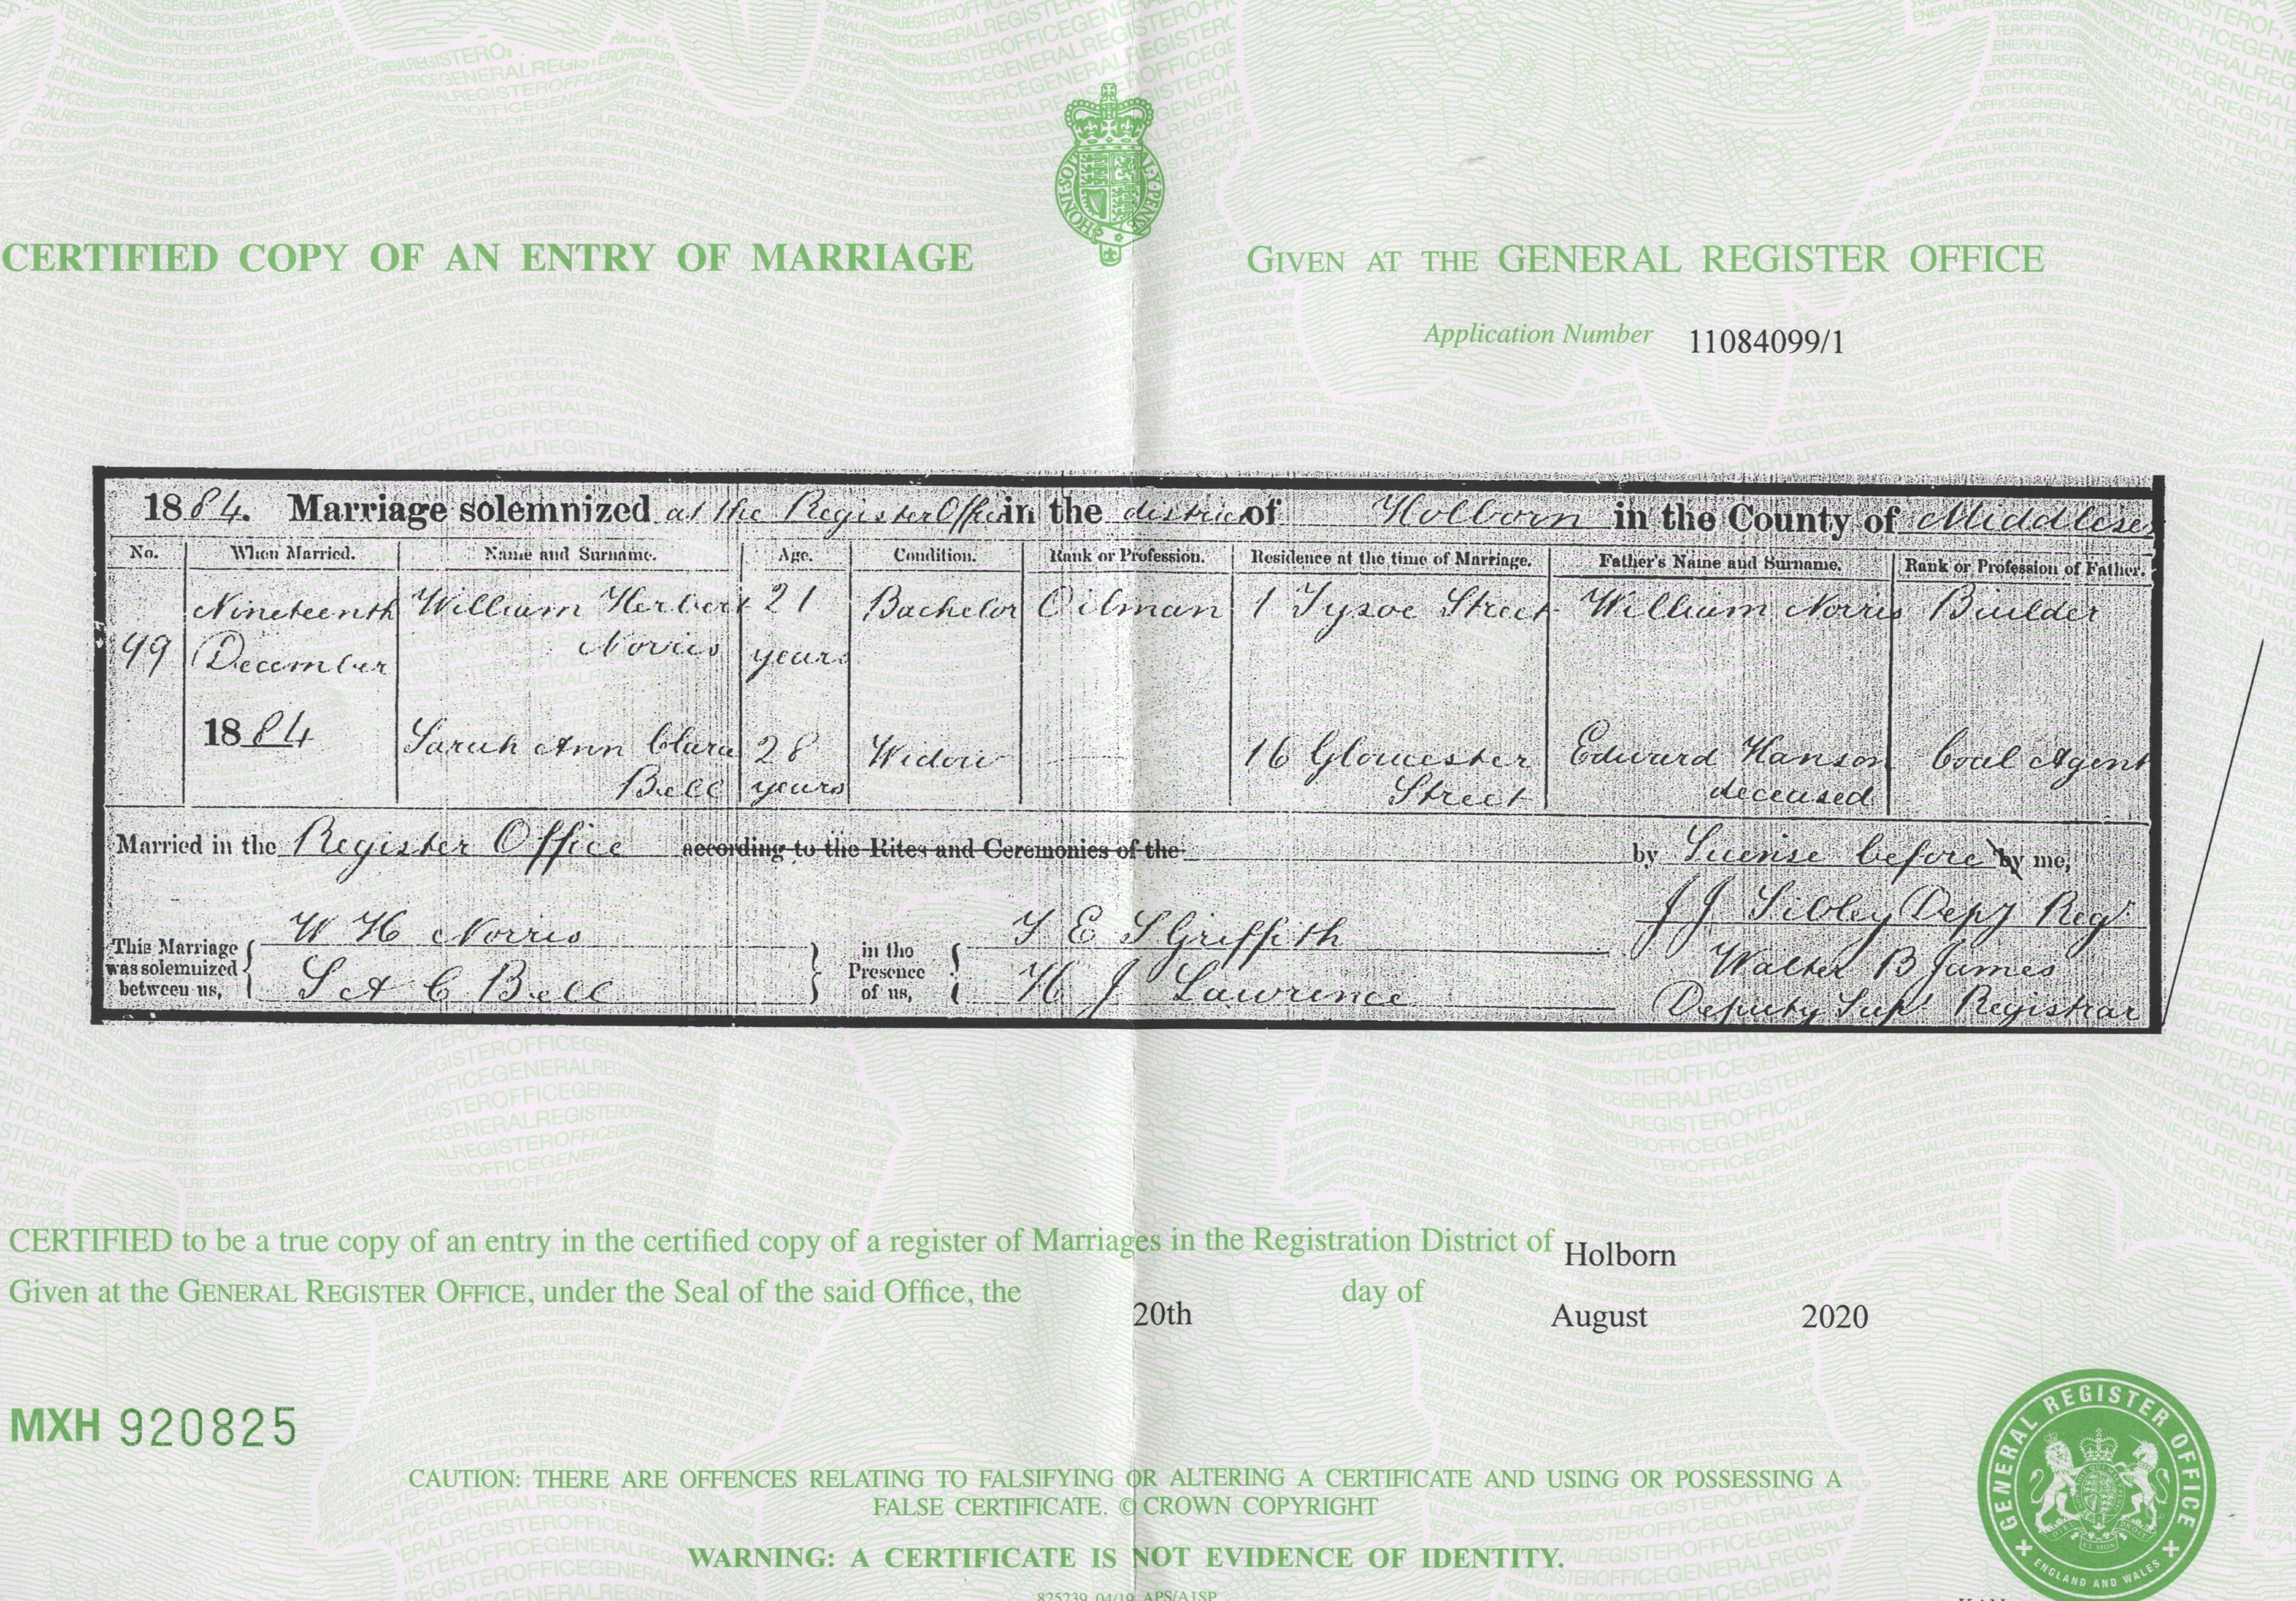 CERTIFIED COPY OF AN ENTRY OF MARRIAGE
GIVEN AT THE GENERAL REGISTER OFFICE
Application Number 11084099/1
1884. Marriage solemnized at the Register Office in the district of Holborn in the County of Middlesex
No. When Married. Name and Surname. Age. Condition. Rank or Profession. Residence at the time of Marriage. Father's Name and Surname. Rank or Profession of Father.
Nineteenth William Herbert 21 Bachelor Oilman 1 Tysoe Street William Norris Builder
99 December Norris years
1884 Sarah Ann Clara 28 Widow 16 Gloucester Edward Hanson Coal Agent
Bell years Street deceased
Married in the Register Office according to the Rites and Ceremonies of the by License before by me,
W H Norris T E S Griffith J J Sibley Depy Regr
This Marriage was solemnized between us, in the Presence of us, Walter B James
S A C Bell H J Lawrence Deputy Supt Registrar
CERTIFIED to be a true copy of an entry in the certified copy of a register of Marriages in the Registration District of Holborn
Given at the GENERAL REGISTER OFFICE, under the Seal of the said Office, the 20th day of August 2020
MXH 920825
CAUTION: THERE ARE OFFENCES RELATING TO FALSIFYING OR ALTERING A CERTIFICATE AND USING OR POSSESSING A
FALSE CERTIFICATE. © CROWN COPYRIGHT
WARNING: A CERTIFICATE IS NOT EVIDENCE OF IDENTITY.
825239 04/19 APS/A1SP
GENERAL REGISTER OFFICE
ENGLAND AND WALES